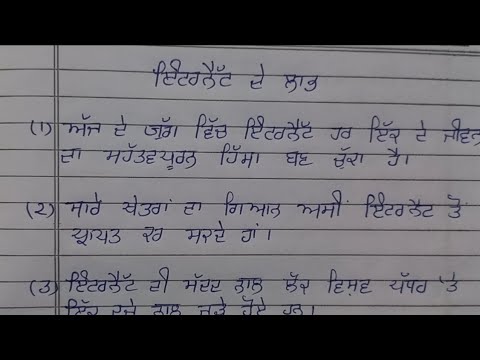 ਇੰਟਰਨੈੱਟ ਦੇ ਲਾਭ
(1) ਅੱਜ ਦੇ ਯੁੱਗ ਵਿੱਚ ਇੰਟਰਨੈੱਟ ਹਰ ਇੱਕ ਦੇ ਜੀਵਨ
ਦਾ ਮਹੱਤਵਪੂਰਨ ਹਿੱਸਾ ਬਣ ਚੁੱਕਾ ਹੈ।
(2) ਸਾਰੇ ਖੇਤਰਾਂ ਦਾ ਗਿਆਨ ਅਸੀਂ ਇੰਟਰਨੈਟ ਤੋਂ
ਪ੍ਰਾਪਤ ਕਰ ਸਕਦੇ ਹਾਂ।
(3) ਇੰਟਰਨੈੱਟ ਦੀ ਮੱਦਦ ਨਾਲ ਲੋਕ ਵਿਸ਼ਵ ਪੱਧਰ 'ਤੇ
ਇੱਕ ਦੂਜੇ ਨਾਲ ਜੁੜੇ ਹੋਏ ਹਨ।